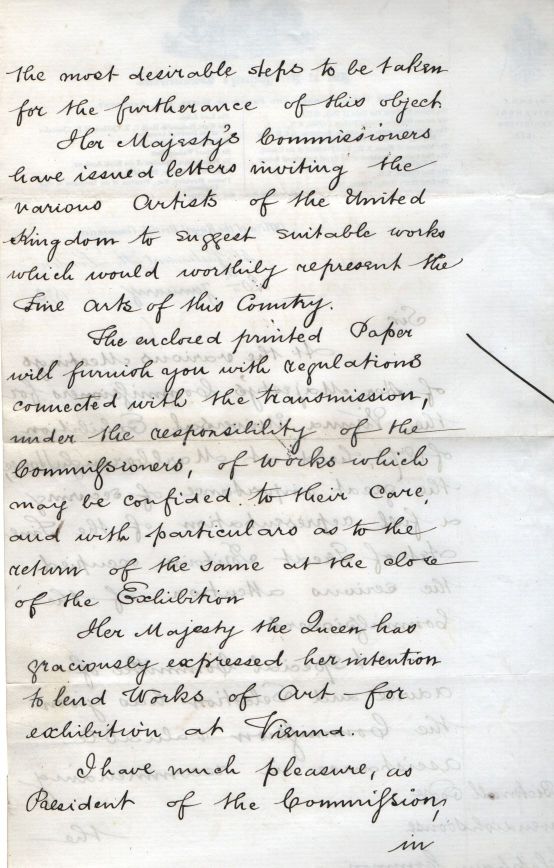 the most desirable steps to be taken
for the furtherance of this object
Her Majesty's Commissioners
have issued letters inviting the
various Artists of the United
Kingdom to suggest suitable works
which would worthily represent the
Fine Arts of this Country.
The enclosed printed Paper
will furnish you with regulations
connected with the transmission,
under the responsibility of the
Commissioners, of works which
may be confided to their Care,
and with particulars as to the
return of the same at the close
of the Exhibition
Her Majesty the Queen has
graciously expressed her intention
to lend Works of Art for
exhibition at Vienna.
I have much pleasure, as
President of the Commission,
in